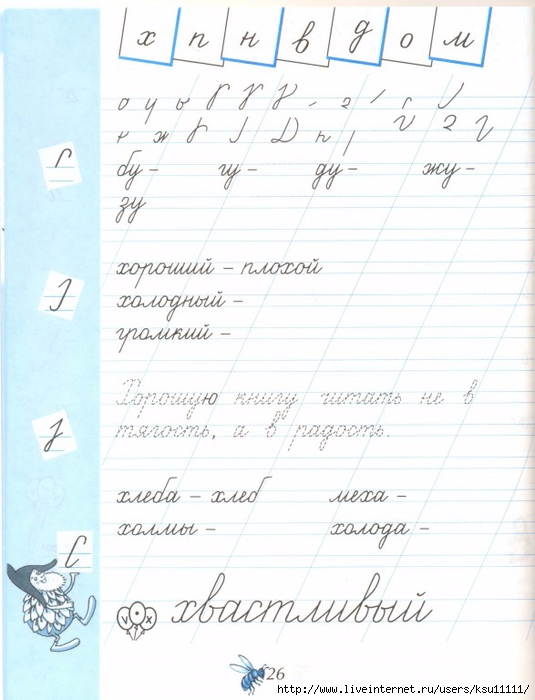 х п н в д о м
бу - гу - ду - жу -
зу
хороший - плохой
холодный -
громкий -
Хорошую книгу читать не в
тягость, а в радость.
хлеба - хлеб меха -
холмы - холода -
v x
хвастливый
26
http://www.liveinternet.ru/users/ksu11111/